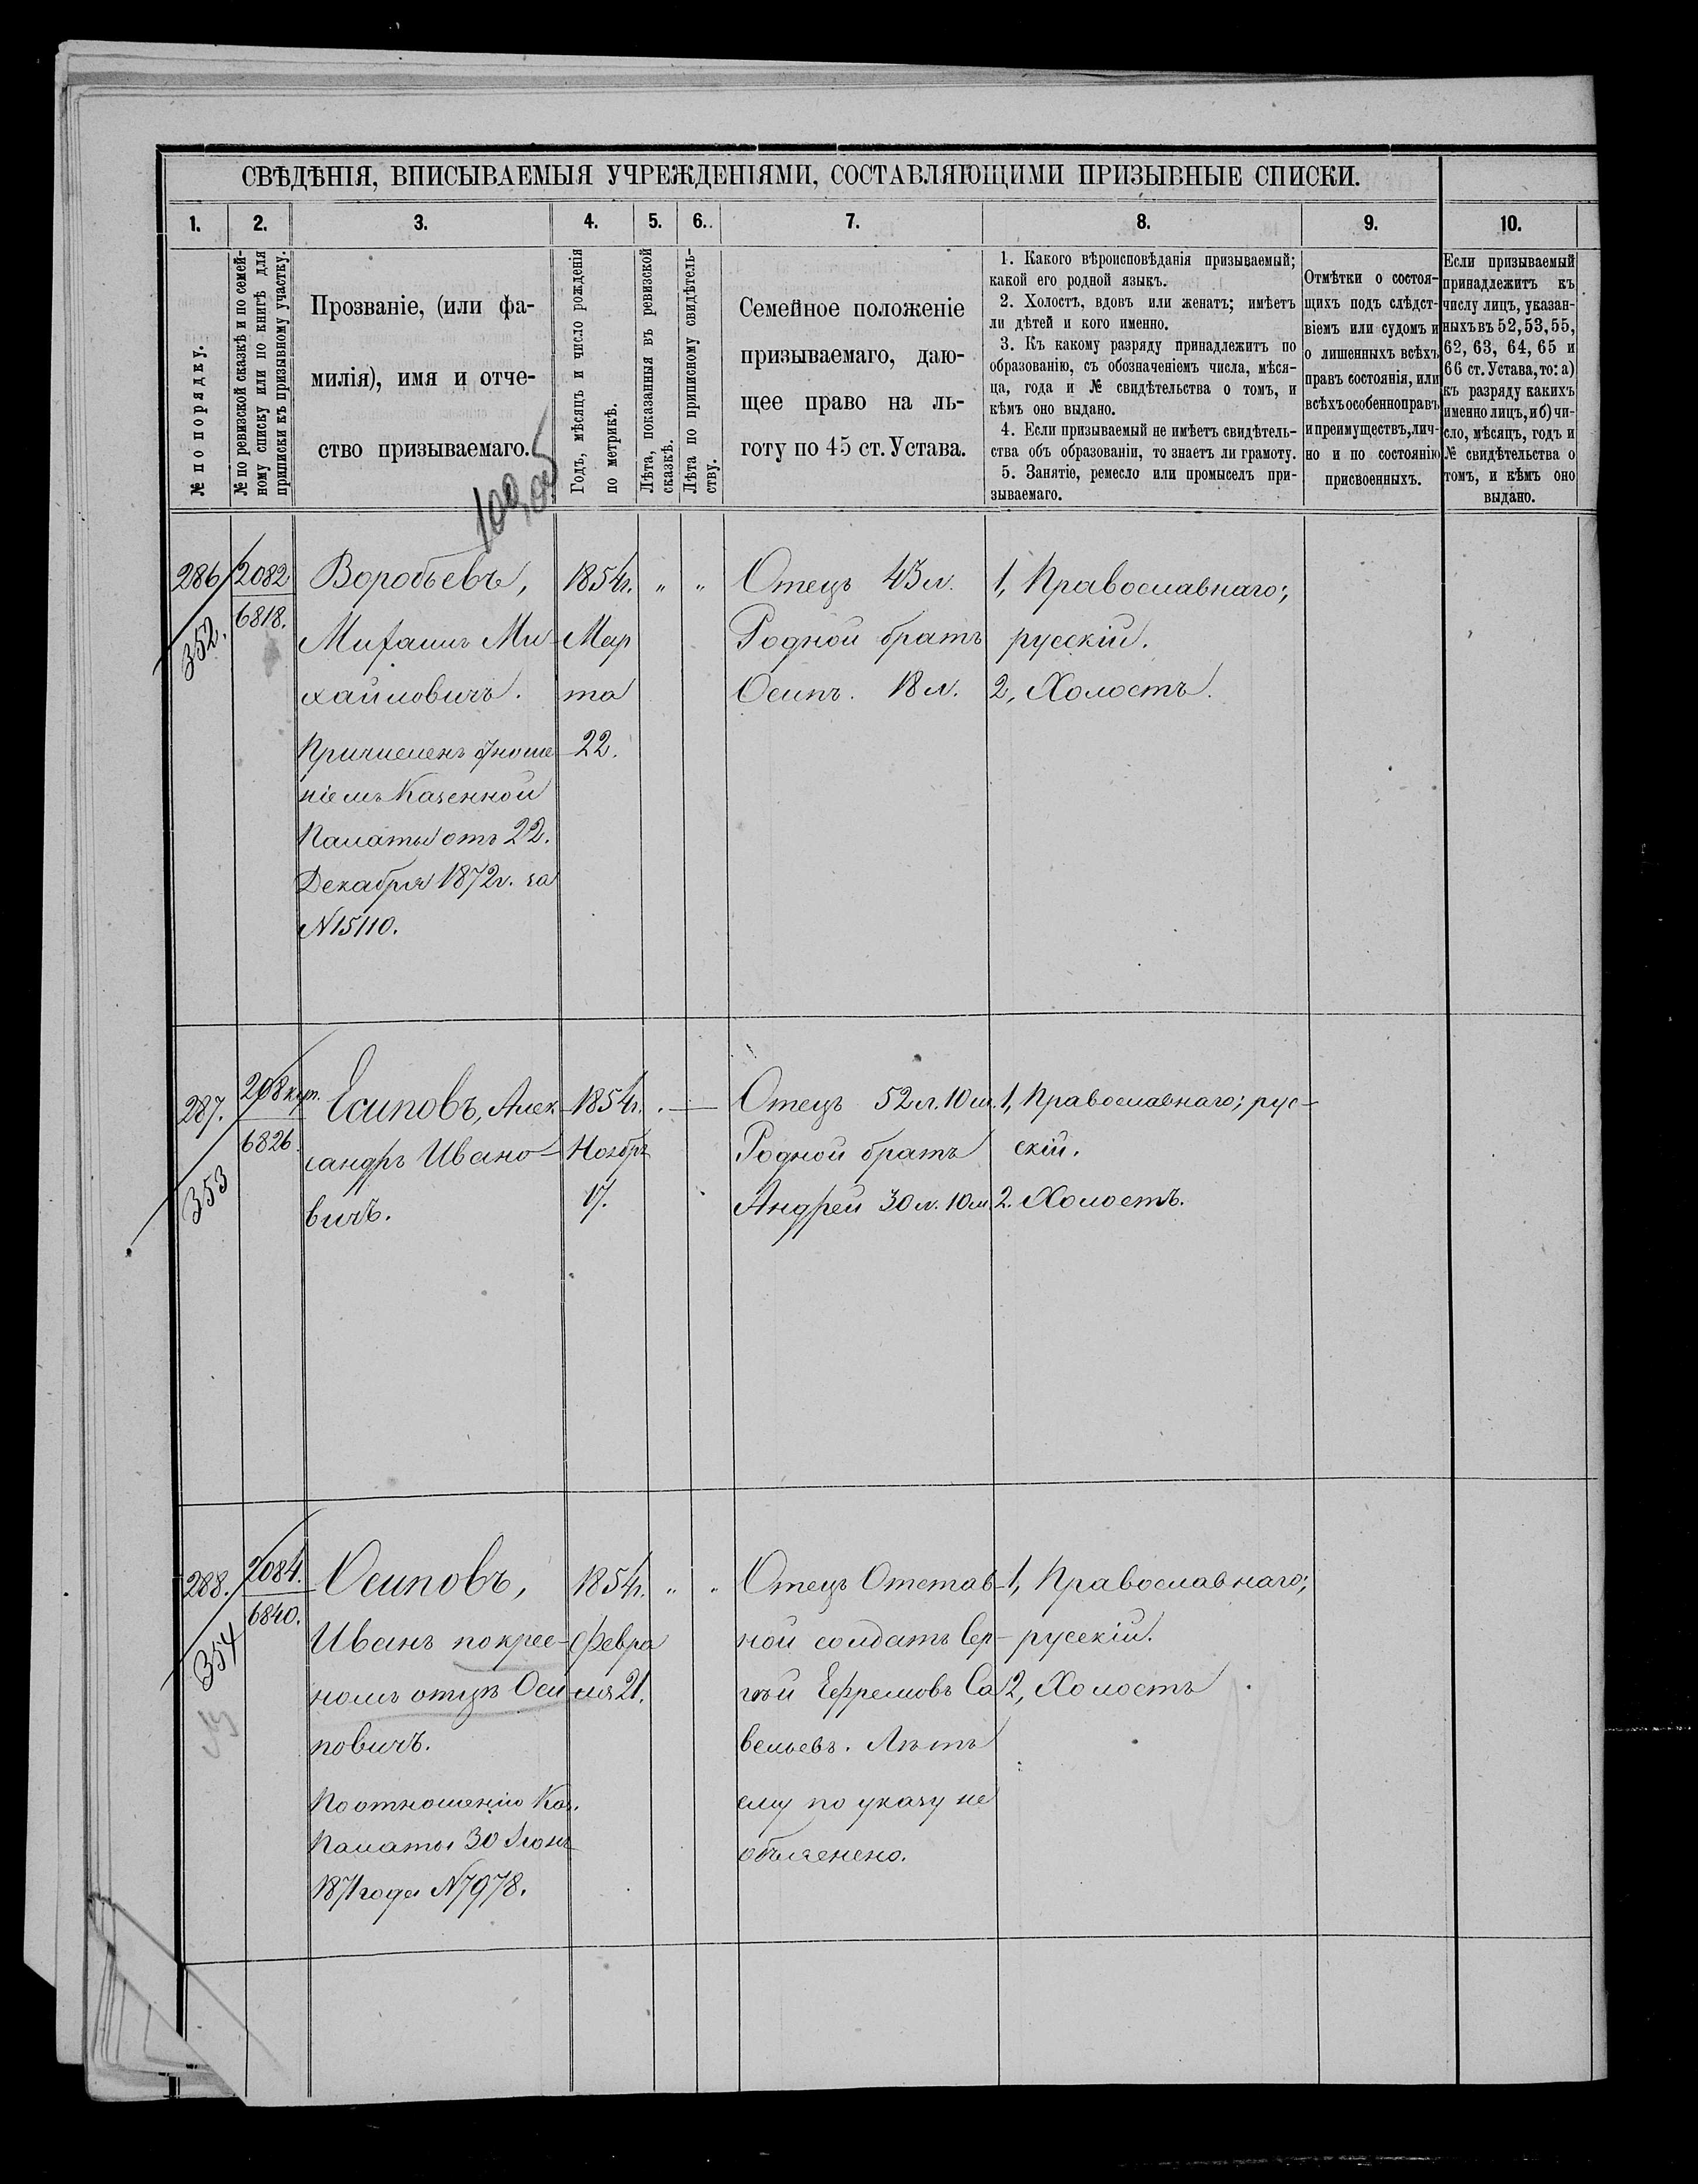 СВѢДѢНІЯ, ВПИСЫВАЕМЫЯ УЧРЕЖДЕНІЯМИ, СОСТАВЛЯЮЩИМИ ПРИЗЫВНЫЕ СПИСКИ.
1.
2.
3.
4.
5.
6.
7.
8.
9.
10.
№ по порядку.
№ по ревизской сказкѣ и по семей-
ному списку или по книгѣ для
приписки къ призывному участку.
Прозваніе, (или фа-
милія), имя и отче-
ство призываемаго.
Годъ, мѣсяцъ и число рожденія
по метрикѣ.
Лѣта, показанныя въ ревизской
сказкѣ.
Лѣта по приписному свидѣтель-
ству.
Семейное положеніе
призываемаго, даю-
щее право на ль-
готу по 45 ст. Устава.
1. Какого вѣроисповѣданія призываемый;
какой его родной языкъ.
2. Холостъ, вдовъ или женатъ; имѣетъ
ли дѣтей и кого именно.
3. Къ какому разряду принадлежитъ по
образованію, съ обозначеніемъ числа, мѣся-
ца, года и № свидѣтельства о томъ, и
кѣмъ оно выдано.
4. Если призываемый не имѣетъ свидѣтель-
ства объ образованіи, то знаетъ ли грамоту.
5. Занятіе, ремесло или промыселъ при-
зываемаго.
Отмѣтки о состоя-
щихъ подъ слѣдст-
віемъ или судомъ и
о лишенныхъ всѣхъ
правъ состоянія, или
всѣхъ особенно правъ
и преимуществъ, лич-
но и по состоянію
присвоенныхъ.
Если призываемый
принадлежитъ къ
числу лицъ, указан-
ныхъ въ 52, 53, 55,
62, 63, 64, 65 и
66 ст. Устава, то: а)
къ разряду какихъ
именно лицъ, и б) чи-
сло, мѣсяцъ, годъ и
№ свидѣтельства о
томъ, и кѣмъ оно
выдано.
286
352.
2082
6818.
Воробьевъ,
Михаилъ Ми-
хайловичъ.
Причисленъ отноше
ніемъ Казенной
Палаты отъ 22.
Декабря 1872г. за
N15110.
1854г.
Мар
та
22.
" "
Отецъ 43л.
Родной братъ
Осипъ. 18л.
1, Православнаго;
русскій.
2, Холостъ.
287.
353
208
6826.
Есиповъ, Алек-
сандръ Ивано-
вичъ.
1854г.
Ноябрь
17.
Отецъ 52л.10м.
Родной братъ
Андрей 30л.10м
1, Православнаго; рус-
скій.
2. Холостъ.
288.
354
2084.
6840.
Осиповъ,
Иванъ по крес-
номъ отцѣ Оси
повичъ.
По отношенію Каз.
Палаты 30 Іюнь
1871 года N7978.
1854г.
Февра
ля 21.
" "
Отецъ Отстав-
ной солдатъ Сер-
гѣй Ефремовъ Са
вельевъ. Лѣтъ
ему по указу не
объяснено.
1, Православнаго;
русскій.
2, Холостъ